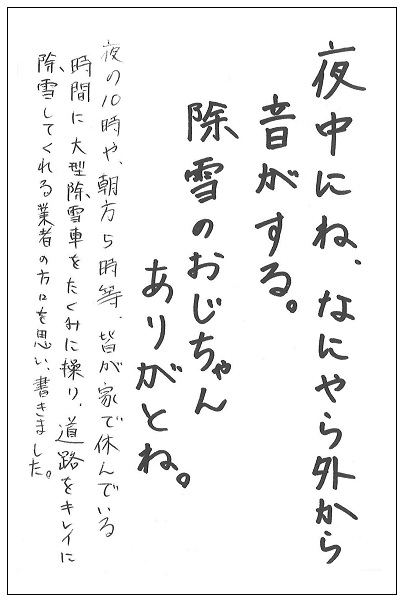 夜中にね、なにやら外から
音がする。
除雪のおじちゃん
ありがとね。
夜の10時や、朝方5時等、皆が家で休んでいる
時間に大型除雪車をたくみに操り、道路をキレイに
除雪してくれる業者の方々を思い、書きました。